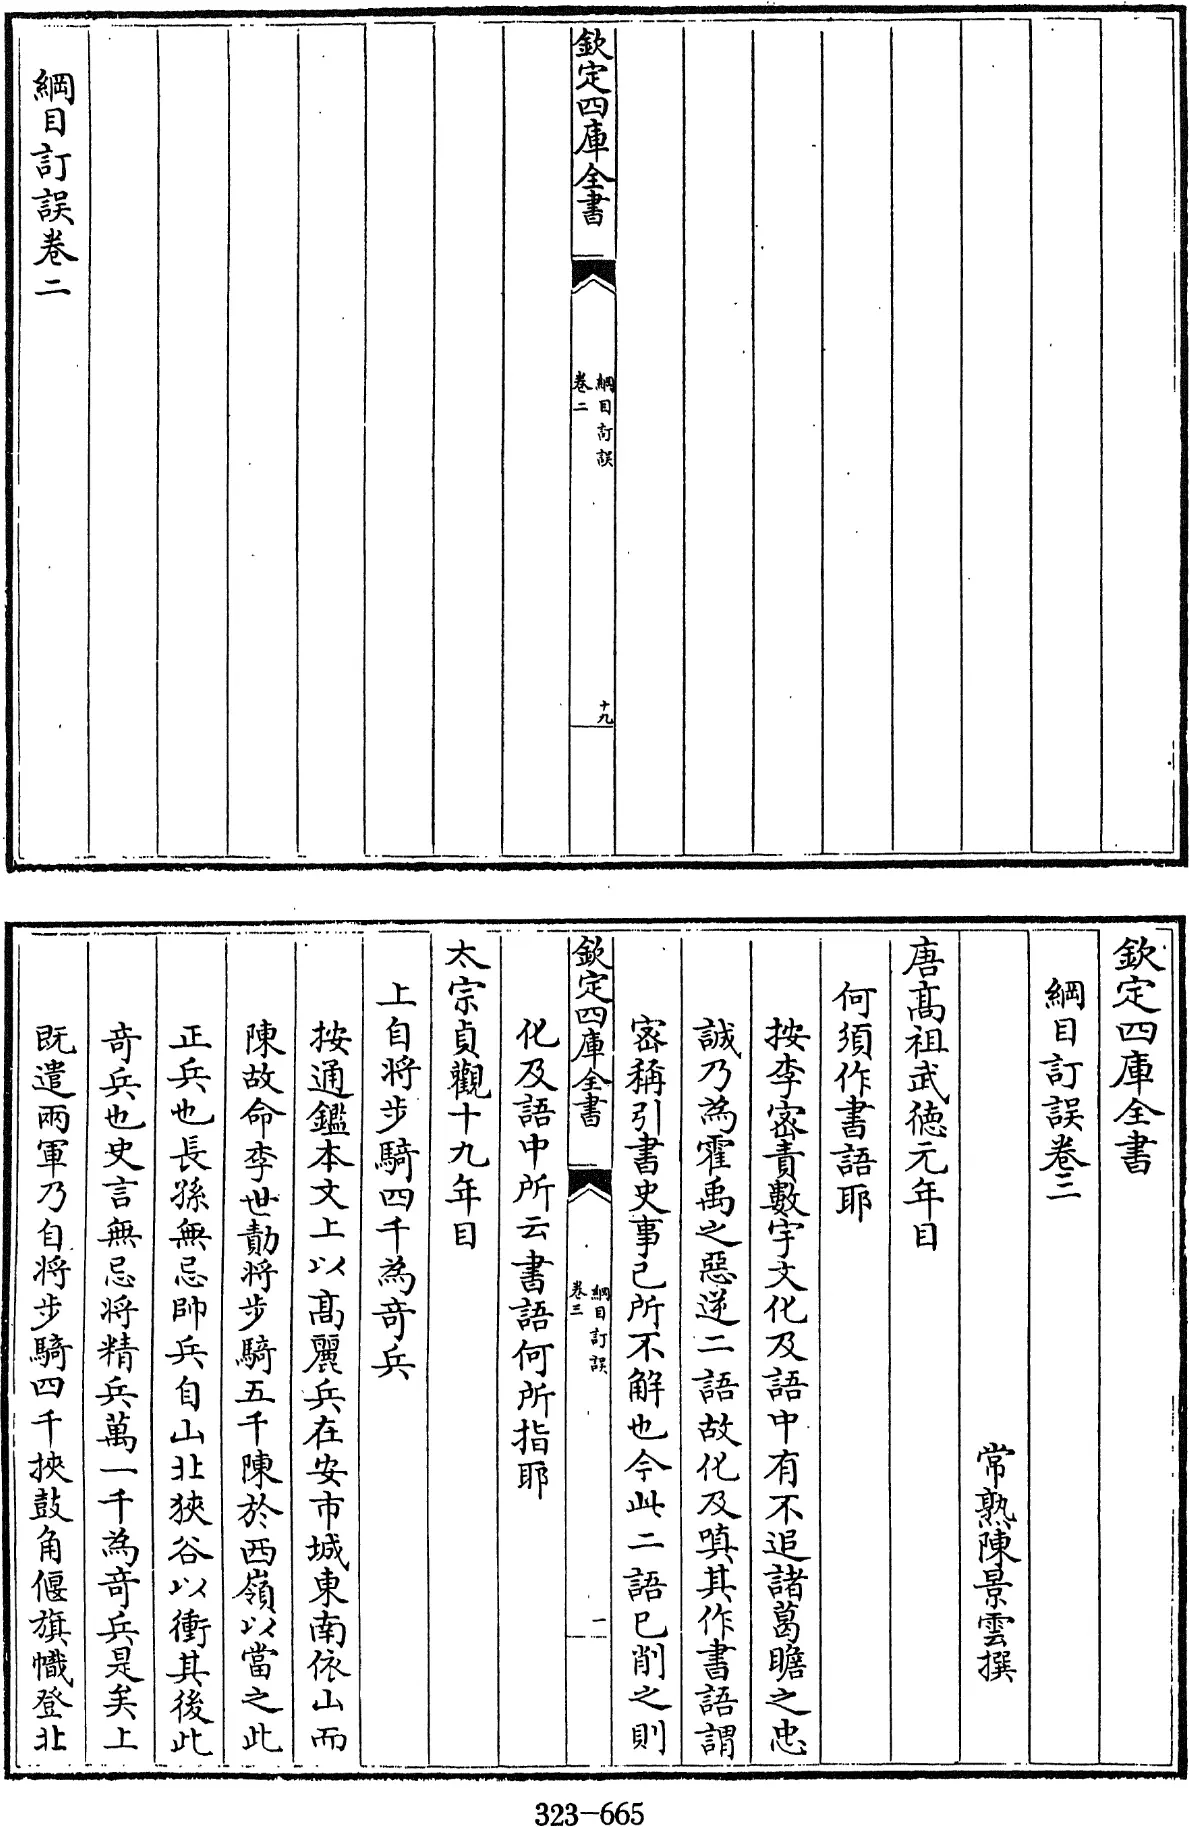 欽定四庫全書
綱目訂誤
卷二
十九
綱目訂誤卷二
欽定四庫全書
綱目訂誤卷三
常熟陳景雲撰
唐髙祖武德元年目
何須作書語耶
按李宻責數宇文化及語中有不追諸葛瞻之忠
誠乃為霍禹之惡逆二語故化及嗔其作書語謂
宻稱引書史事己所不解也今此二語已削之則
欽定四庫全書
綱目訂誤
卷三
一
化及語中所云書語何所指耶
太宗貞觀十九年目
上自將步騎四千為竒兵
按通鑑本文上以髙麗兵在安市城東南依山而
陳故命李世勣將步騎五千陳於西嶺以當之此
正兵也長孫無忌帥兵自山北狹谷以衝其後此
竒兵也史言無忌將精兵萬一千為竒兵是矣上
既遣兩軍乃自將步騎四千挾鼓角偃旗幟登北
323-665